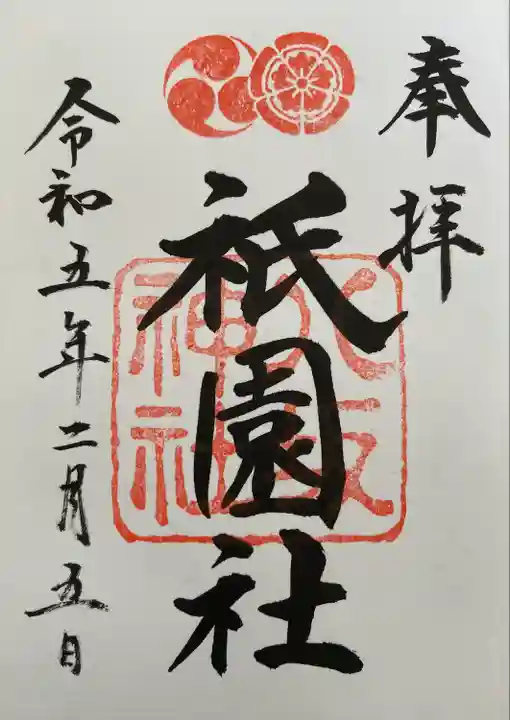 奉拝
祇園社
八坂
神社
令和五年二月五日